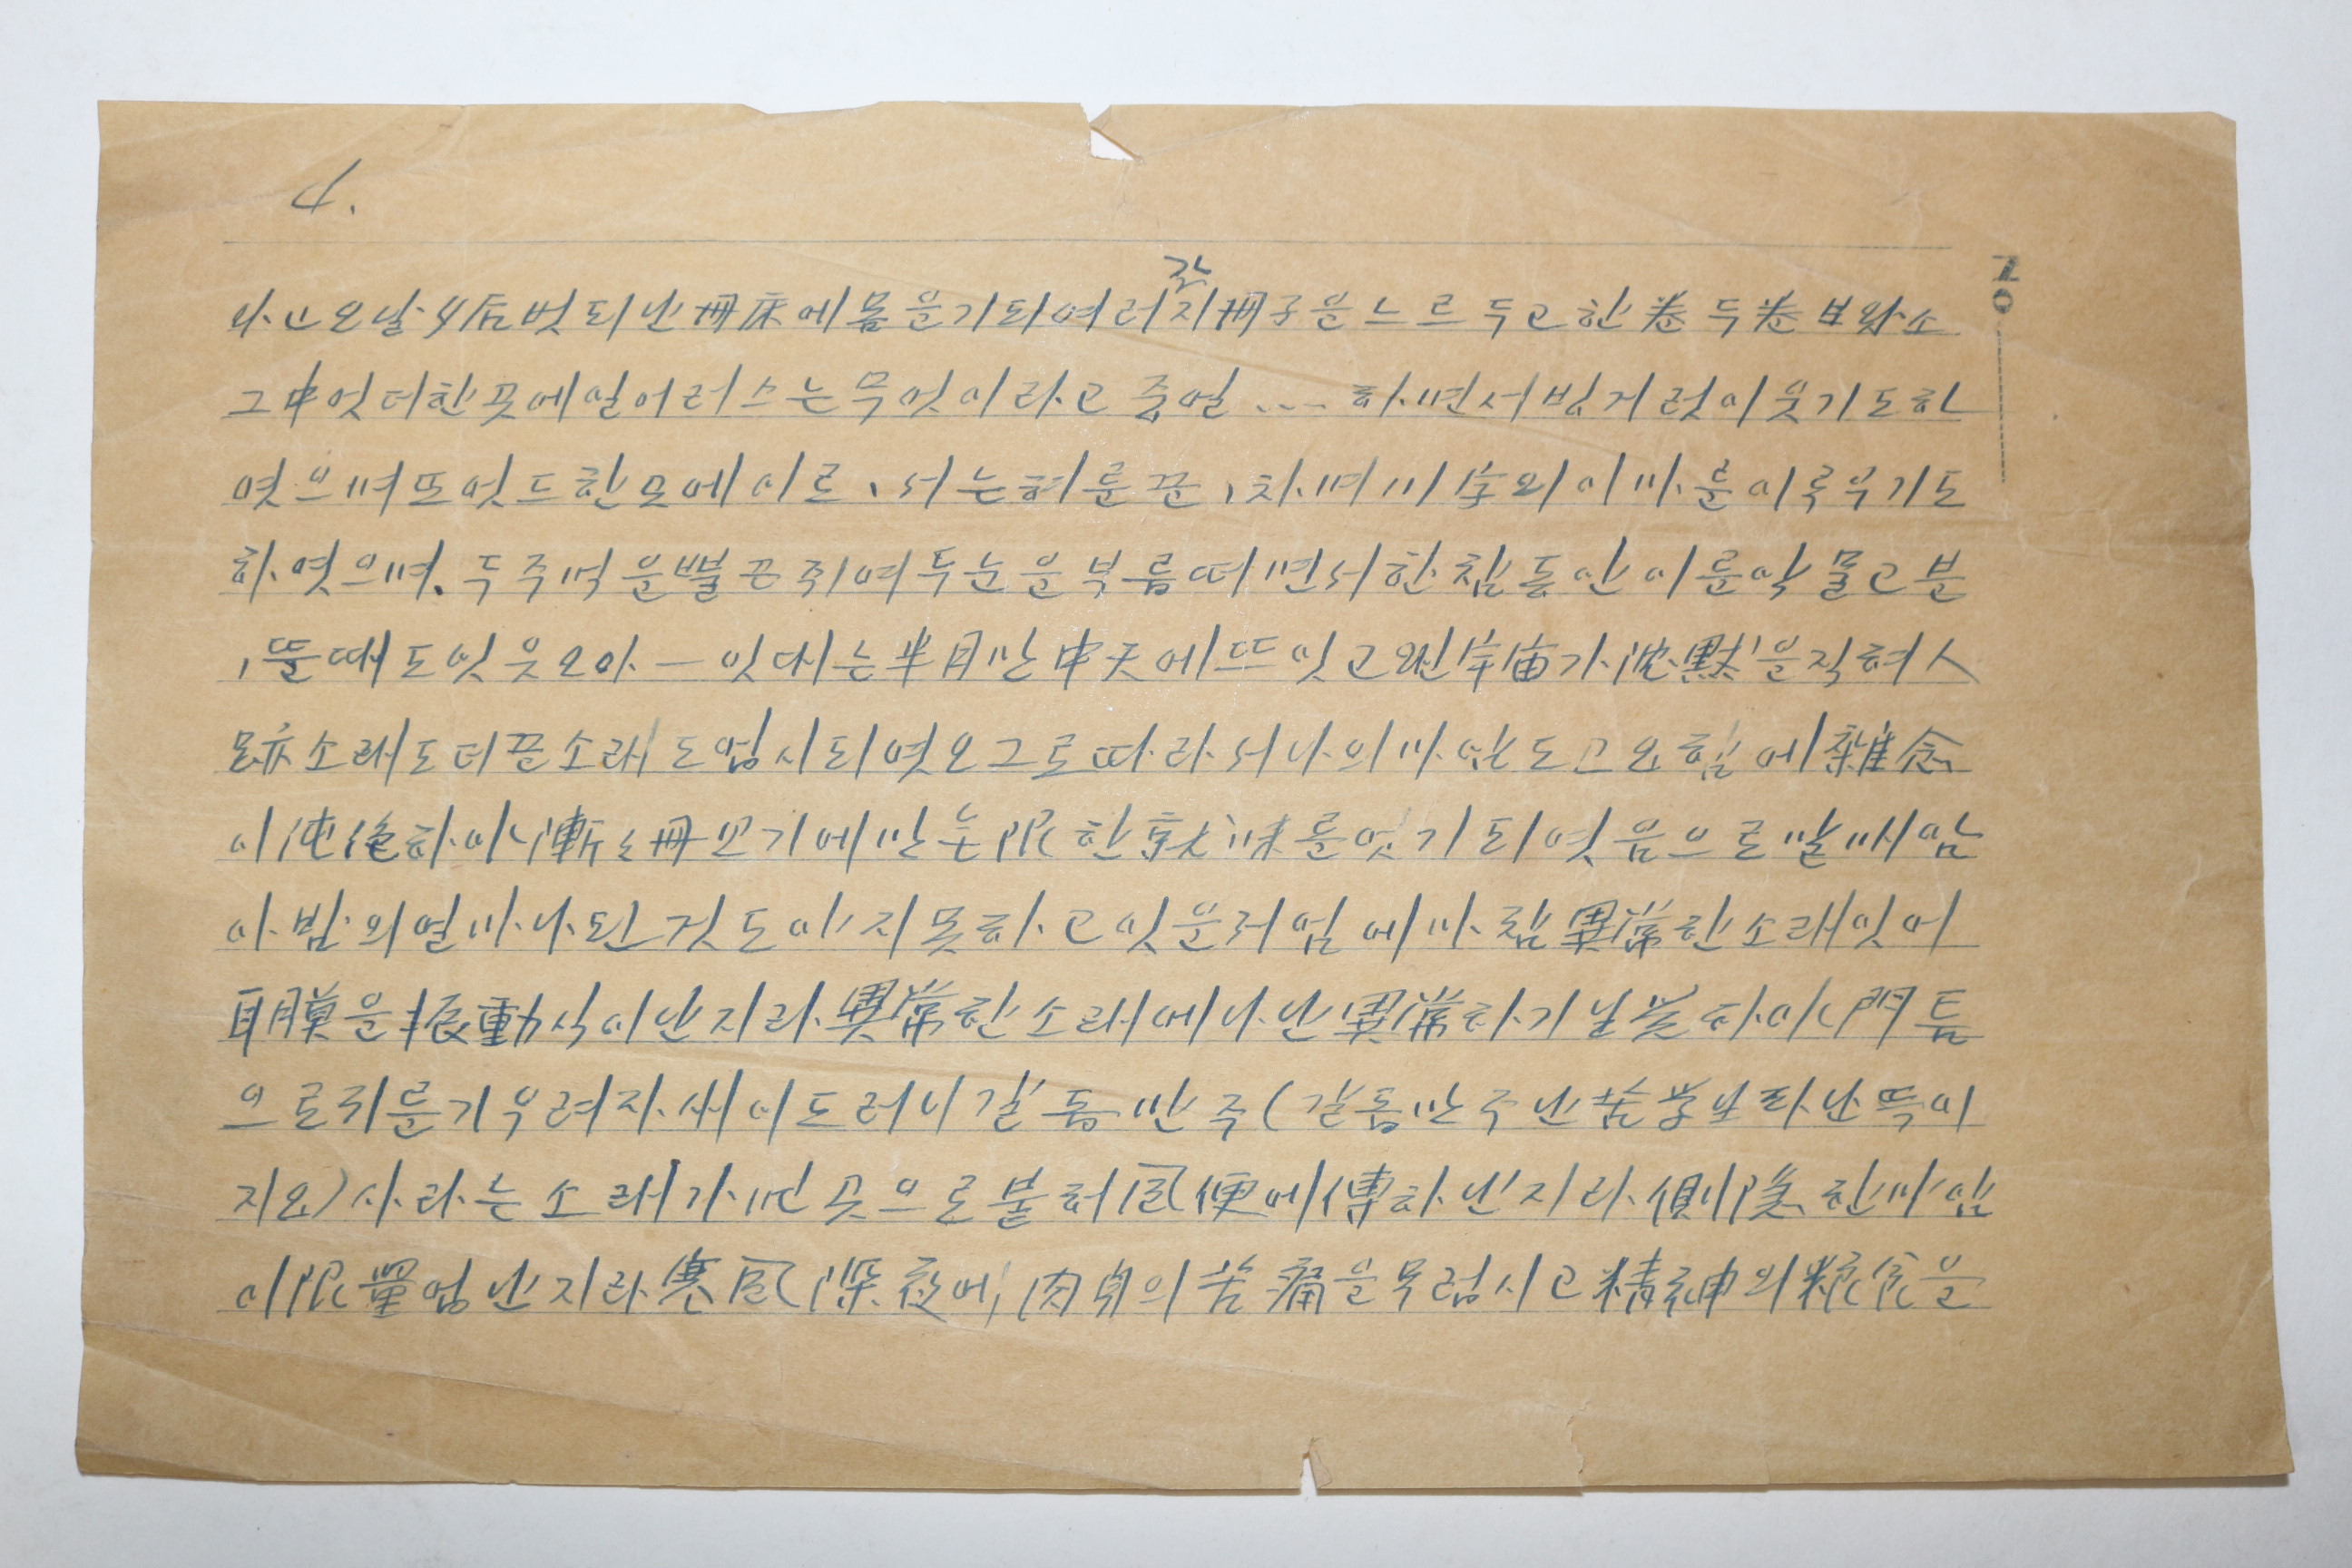 4.
No
나고 오날 夕后 벗되난 冊床에 몸을 기되여 러 갖지 冊子을 느르 두고 한 卷 두 卷 보와소
그 中 엇더한 곳에 일어러스는 무엇이라고 중얼 .... 하면서 빙거럿이 웃기도 하
엿으며 또 엇드한 모에 이르, 서는 혀룰 끌, 차며 川字의 이마룰 이루우기도
하엿으며, 두 주먹을 뿔끈 쥐여 두 눈을 부름떠면서 한참 동안 이룰 악물고 분
, 뚤 때도 잇웃오아 — 잇대는 半月만 中天에 뜨잇고 왼 宇宙가 沈默을 직혀 人
跡 소래도 더끈 소래도 업시 되엿오 그로 따라서 나의 마암도 고요함에 雜念
이 하야 漸々 冊 보기에만 無限한 趣味를 엇기 되엿음으로 말매암
아 밤의 얼마나 된 것도 아지 못하고 잇을 러임에 마참 異常한 소래 잇어
耳膜을 振動식이난지라 異常한 소래에 나난 異常하기 난 하야 門틈
으로 귀룰 기우려 자새이 드러니 갈돕만주 (갈돕만주난 苦學生파난 떡이
지요) 사라는 소래가 먼 곳으로붙허 風便에 傳하난지라 惻隱한 마암
이 限量업난지라 寒風 深夜에, 肉身의 苦痛을 무럽시고 精神의 粮食을